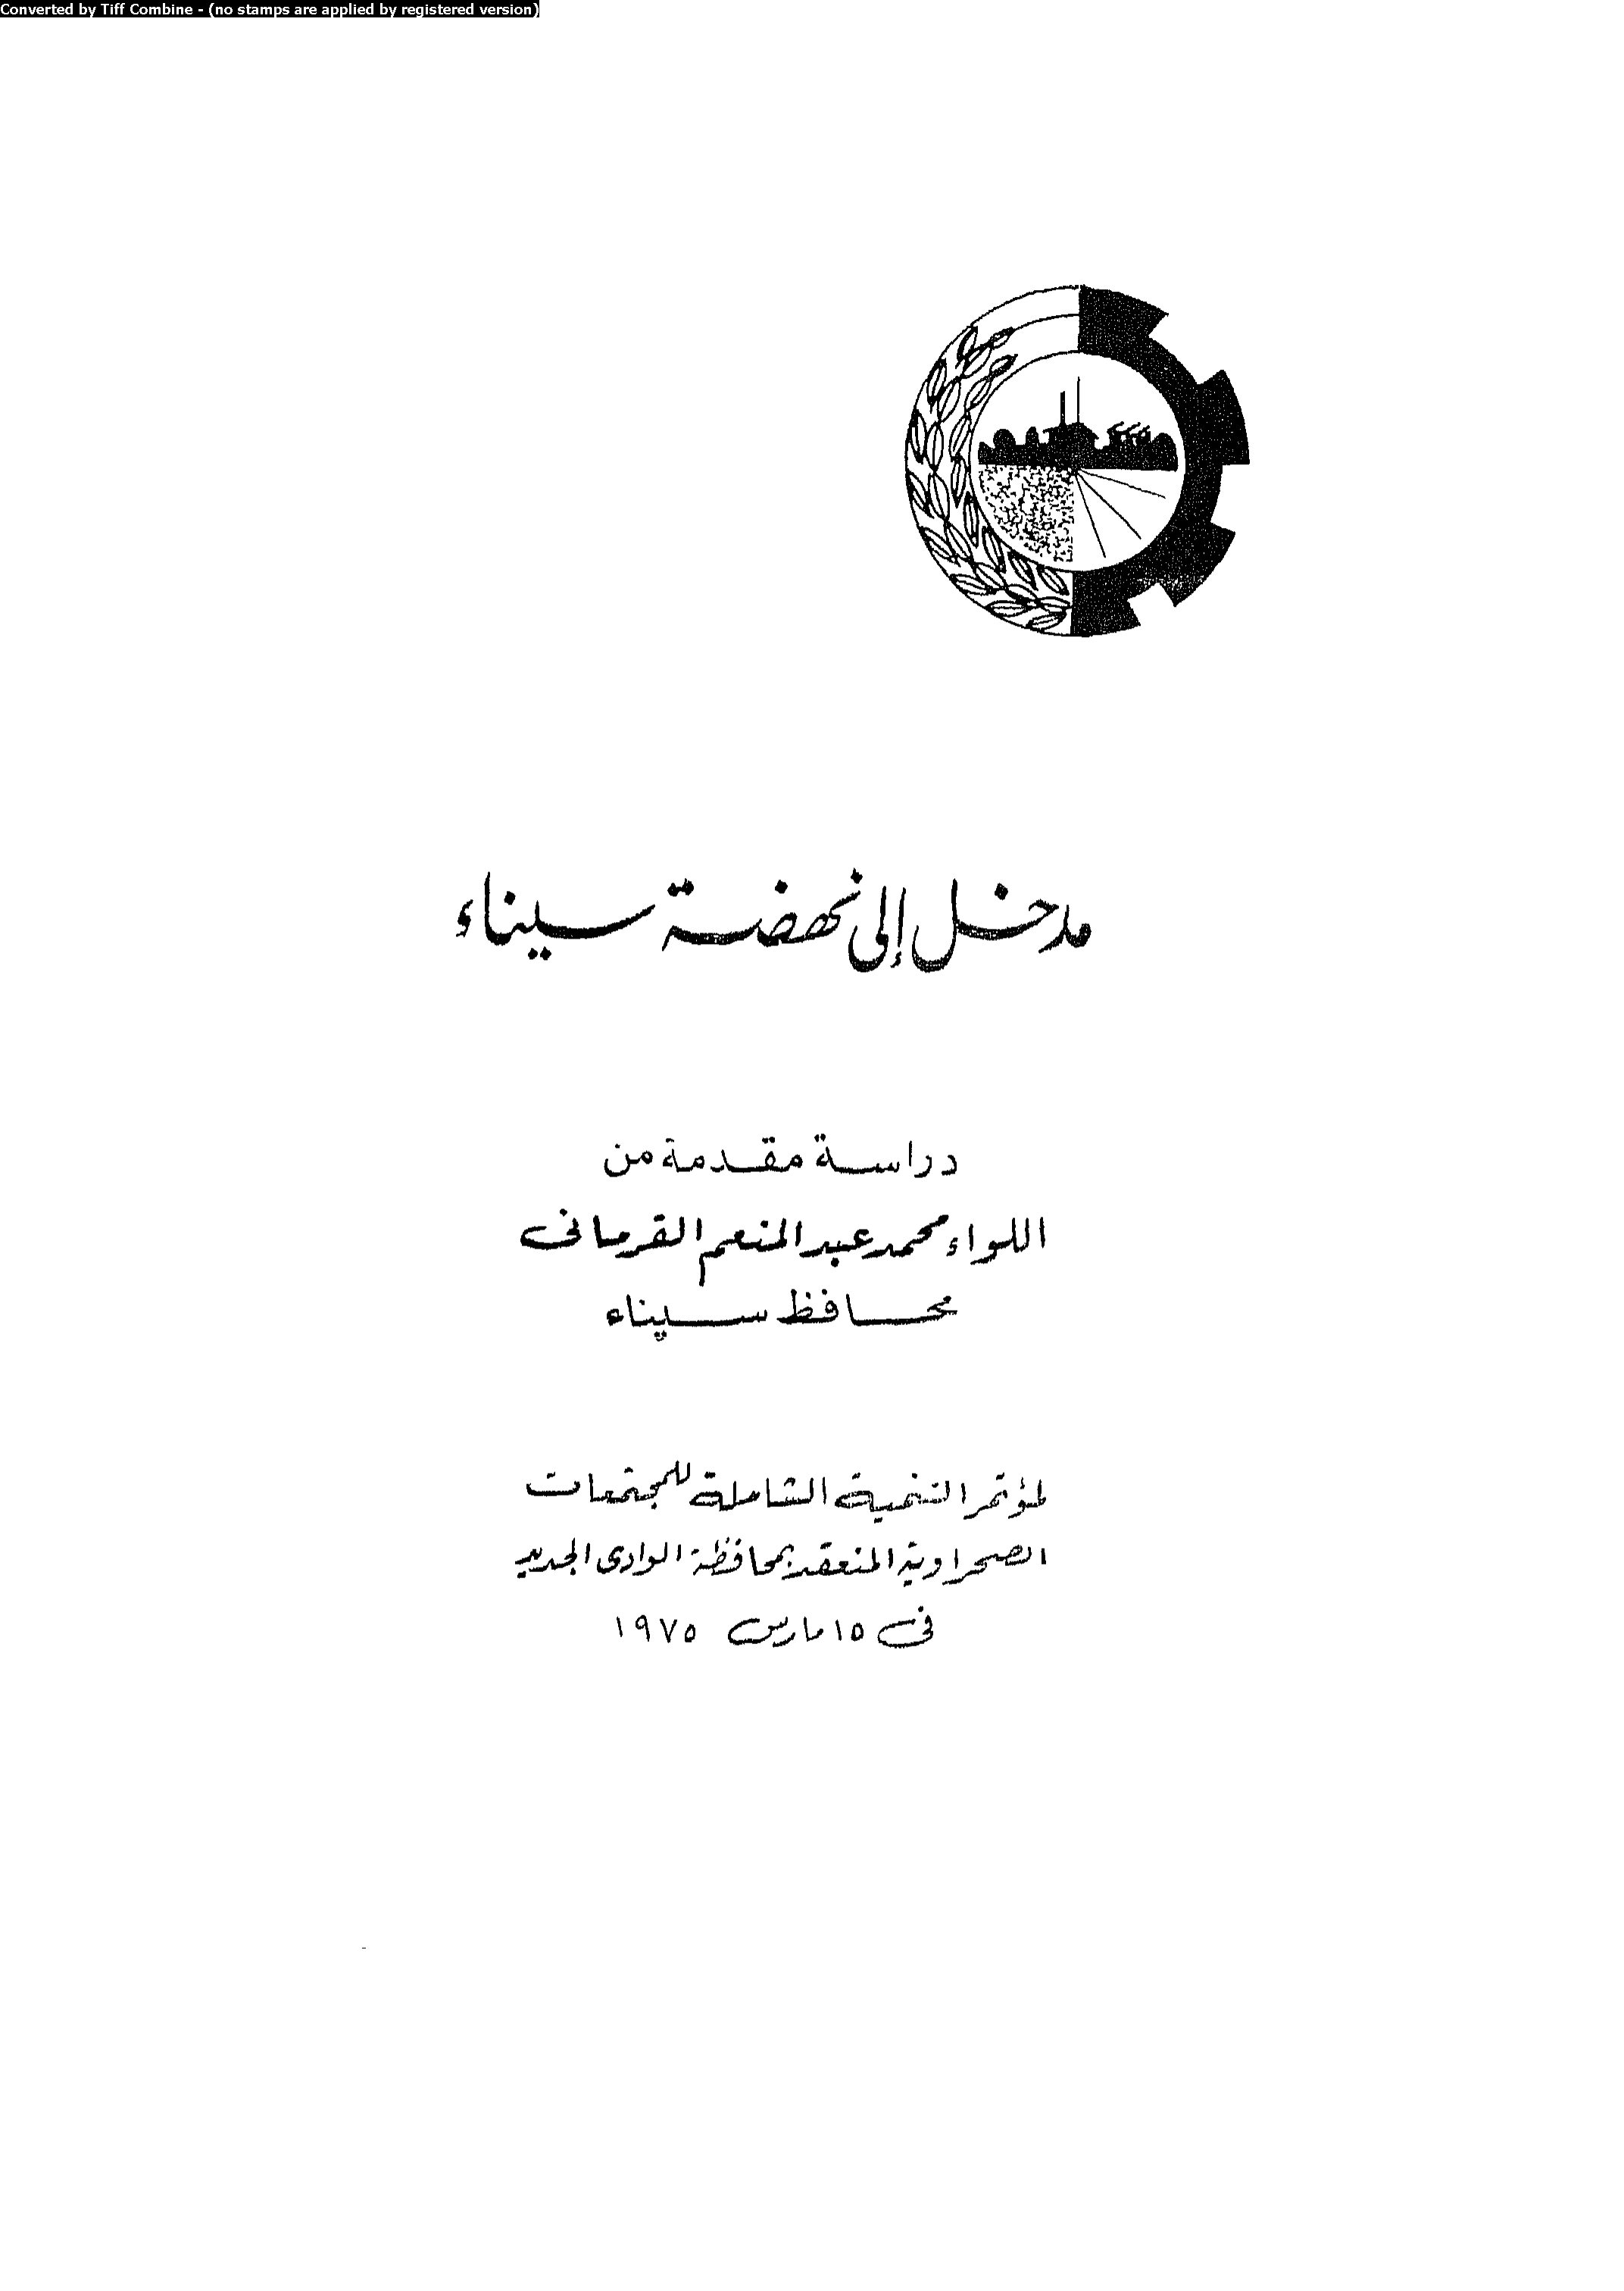 Converted by Tiff Combine - (no stamps are applied by registered version)
مدخل إلى نهضة سيناء
دراسة مقدمة من
اللواء محمد عبد المنعم القرمانى
محافظ سيناء
لمؤتمر التنمية الشاملة للمجتمعات
الصحراوية المنعقد بمحافظة الوادى الجديد
فى ١٥ مارس ١٩٧٥